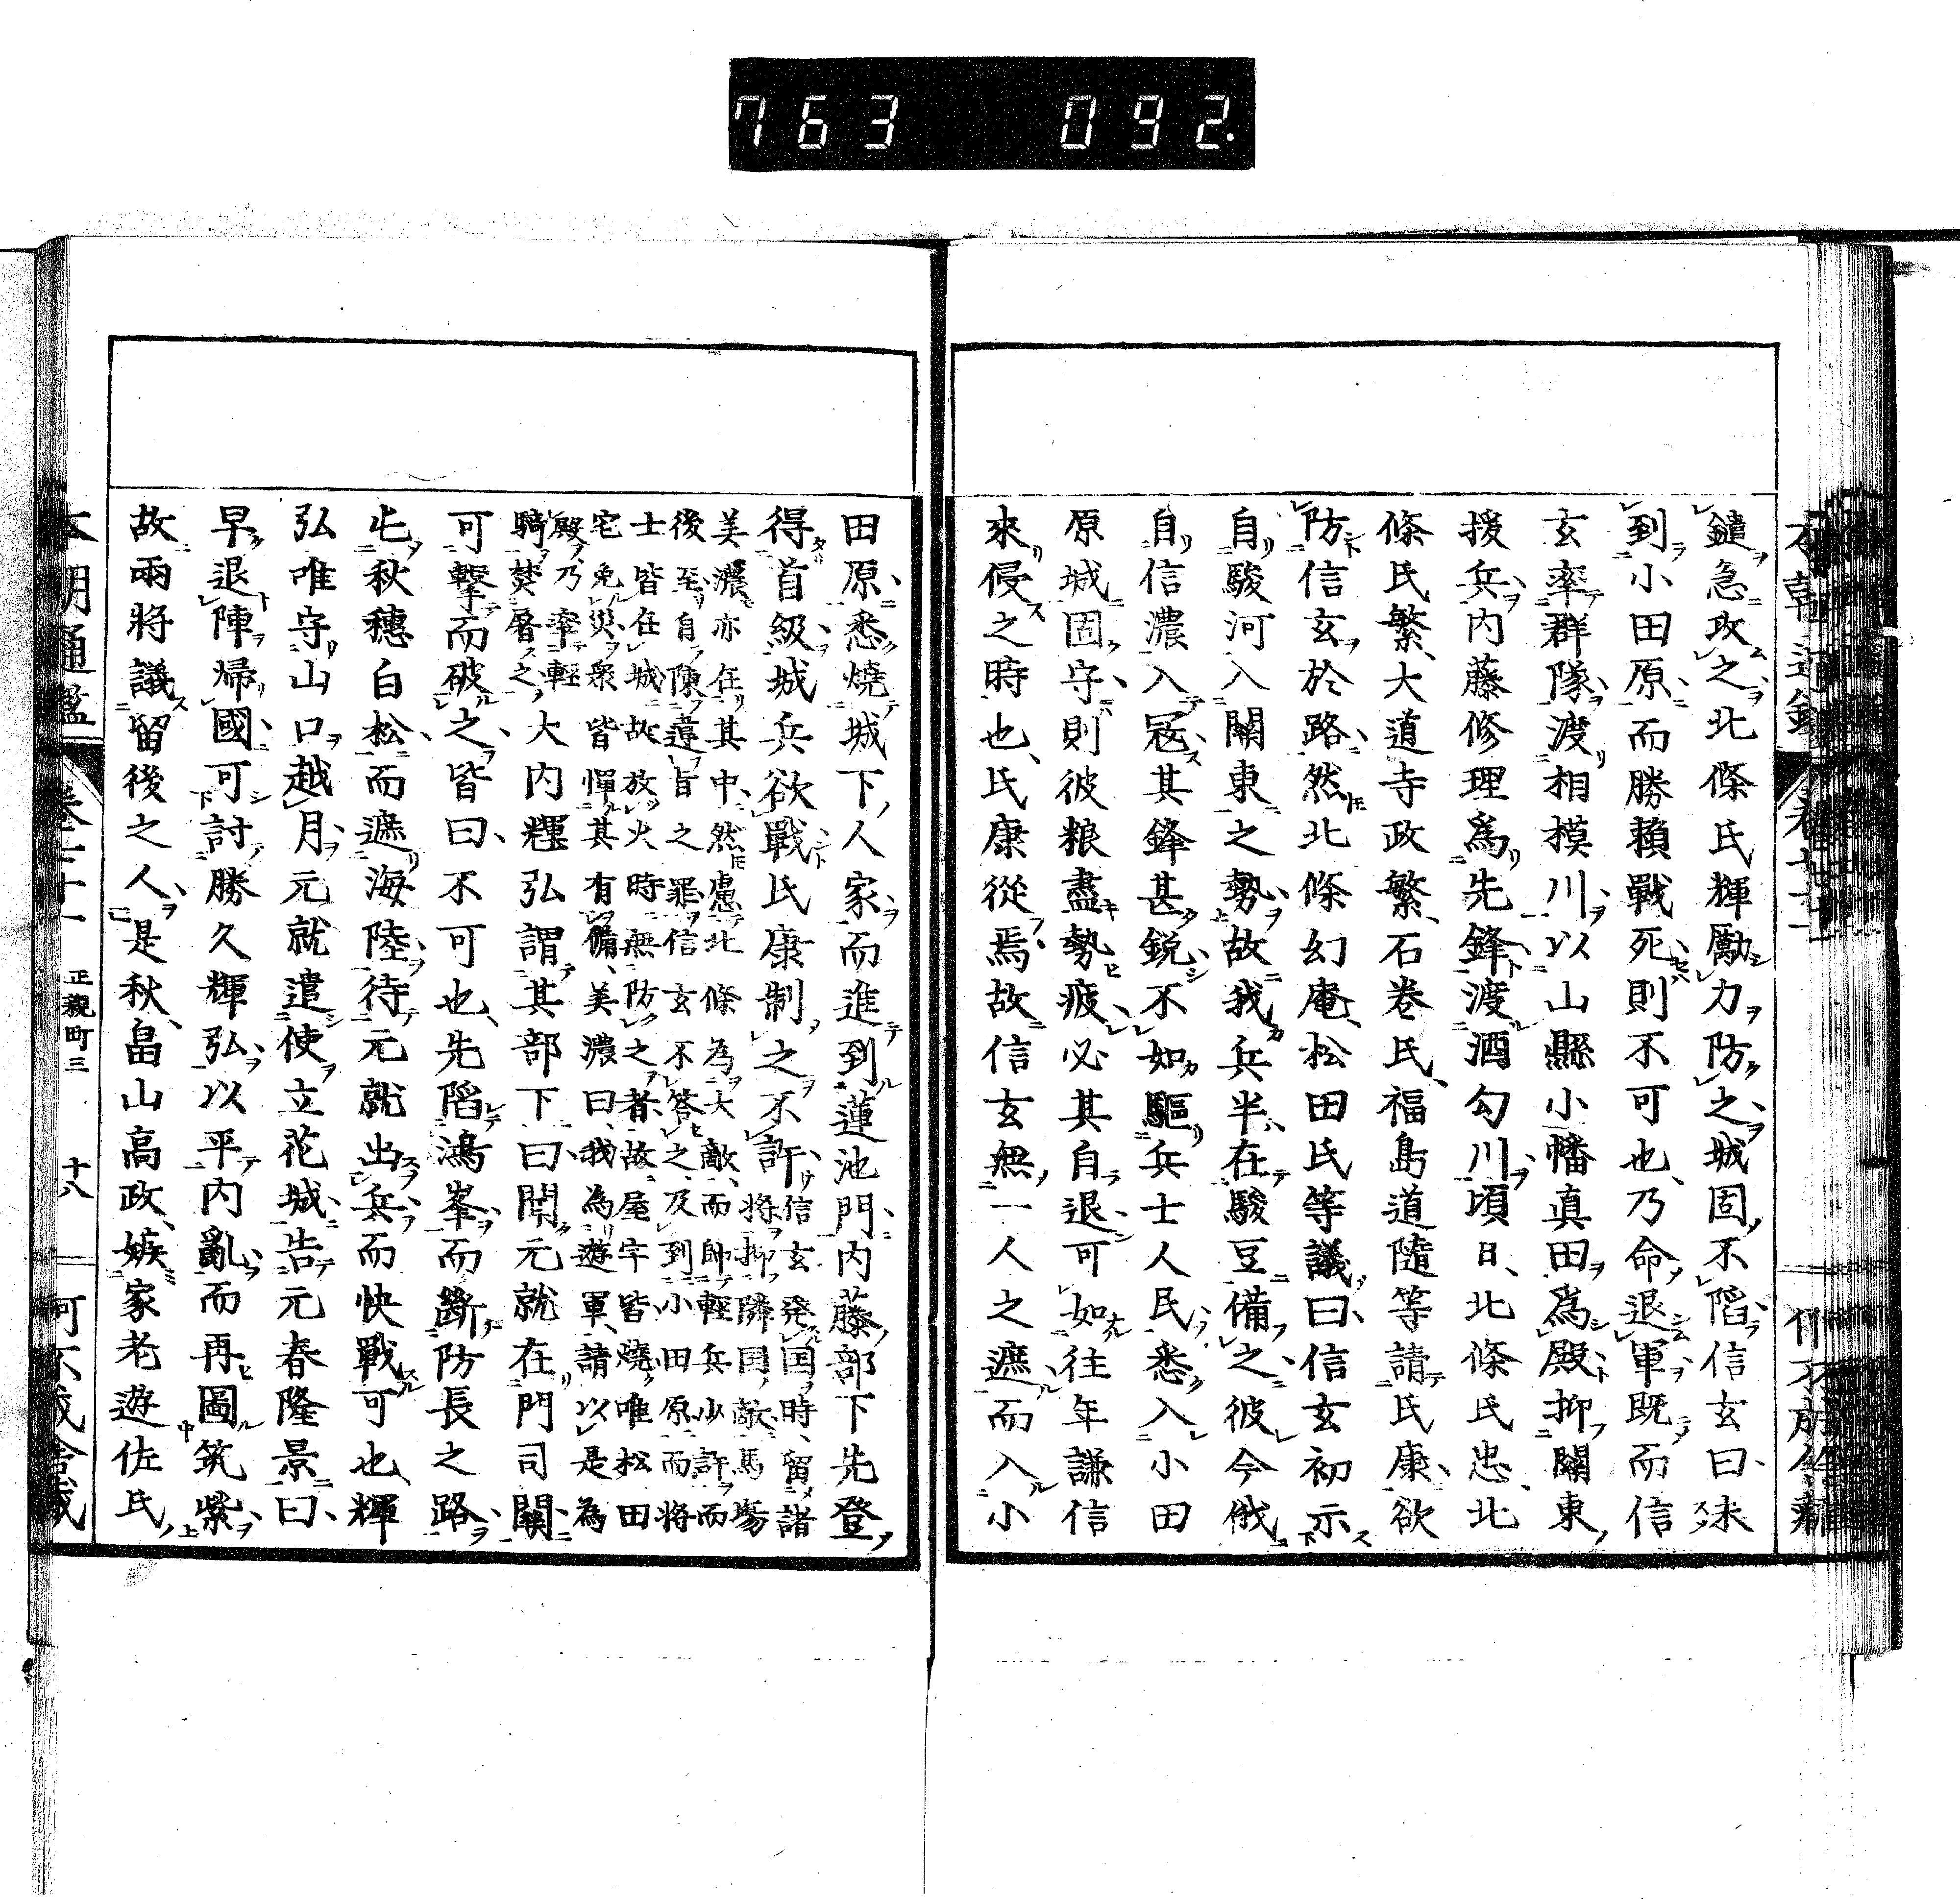 763 092.
鑓急攻之北條氏輝勵力防之城固不陷信玄曰未
到小田原而勝賴戰死則不可也乃命退軍既而信
玄率群隊渡相摸川以山縣小幡真田爲殿抑關東
援兵内藤修理爲先鋒渡酒勾川頃日北條氏忠北
條氏繁大道寺政繁石卷氏福島道隨等請氏康欲
防信玄於路然北條幻庵松田氏等議曰信玄初示
自駿河入關東之勢故我兵半在駿豆備之彼今俄
自信濃入冦其鋒甚鋭不如驅兵士人民悉入小田
原城固守則彼粮盡勢疲必其自退可如往年謙信
來侵之時也氏康從焉故信玄無一人之遮而入小
田原悉燒城下人家而進到蓮池門内藤部下先登
得首級城兵欲戰氏康制之不許信玄発国時留諸
將抑隣国敵馬塲
美濃亦在其中然慮北條為大敵而帥輕兵少許而
後至自陳違旨之罪信玄不答之及到小田原而將
士皆在城故放火時無防之者故屋宇皆燒唯松田
宅免災衆皆憚其有備美濃曰我為遊軍請以是為
殿乃率輕
騎焚屠之大内輝弘謂其部下曰聞元就在門司關
可擊而破之皆曰不可也先陷鴻峯而斷防長之路
屯秋穗白松而遮海陸待元就出兵而快戰可也輝
弘唯守山口越月元就遣使立花城告元春隆景曰
早退陣帰國可討勝久輝弘以平内亂而再圖筑紫
故兩將議留後之人是秋畠山高政嫉家老遊佐氏
本朝通鑑 卷 正親町三 十八